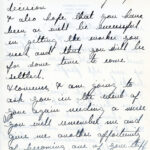 decision
I also hope that you have
been or will be successful
in getting the worker you
need and that you will be
for some time to come,
settled.
However I am going to
ask you, in the event of
your again needing a nurse
you will remember me and
give me another opportunity
of becoming one of your staff